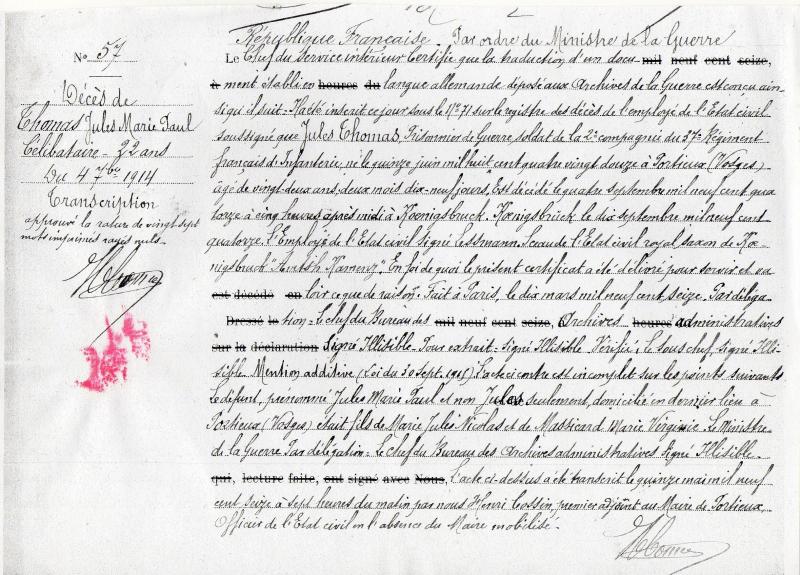 Nº 57
Décès de
Thomas Jules Marie Paul
Célibataire - 22 ans
Du 4 7bre 1914
Transcription
approuvé la rature de vingt sept
mots imprimés rayés nuls.
République Française Par ordre du Ministre de la Guerre
Le Chef du Service intérieur Certifie que la traduction d'un docu- mil neuf cent seize,
à ment établi en heures du langue allemande déposé aux Archives de la Guerre est conçu ain-
si qu'il suit - inscrit ce jour sous le Nº 71 sur le registre des décès de l'employé de l'Etat civil
soussigné que Jules Thomas, Prisonnier de Guerre, soldat de la 2e compagnie du 37e Régiment
français d'Infanterie, né le quinze juin mil huit cent quatre vingt douze à Portieux (Vosges)
âgé de vingt-deux ans, deux mois dix-neuf jours, Est décidé le quatre septembre mil neuf cent qua
torze à cinq heures après midi à Koenigsbruck. Koenigsbrück le dix septembre mil neuf cent
quatorze. l'Employé de l'Etat civil signé Lessmann. Sceau de l'Etat civil royal saxon de Kœ-
nigsbruck Kamenz" En foi de quoi le présent certificat a été délivré pour servir et va
est décédé en loir ce que de raison. Fait à Paris, le dix mars mil neuf cent seize. Par déléga
Dressé le tion - le chef du Bureau des mil neuf cent seize, Archives heures administratives
sur la déclaration Signé Illisible. Pour extrait - Signé Illisible Vérifié, le sous chef, signé Illi-
sible Mention additive (Loi du 30 Sept. 1915) l'acte ci contre est incomplet sur les points suivants
Le défunt, prénommé Jules Marie Paul et non Jules seulement, domicilié en dernier lieu à
Portieux (Vosges) était fils de Marie Jules Nicolas et de Masticard Marie Virginie. Le Ministre
de la Guerre Par délégation - le chef du Bureau des Archives administratives Signé Illisible.
qui, lecture faite, ont signé avec Nous, l'acte ci-dessus a été transcrit le quinze mai mil neuf
cent seize à sept heures du matin par nous Henri Cossin, premier adjoint au Maire de Portieux,
Officier de l'Etat civil en l'absence du Maire mobilisé.